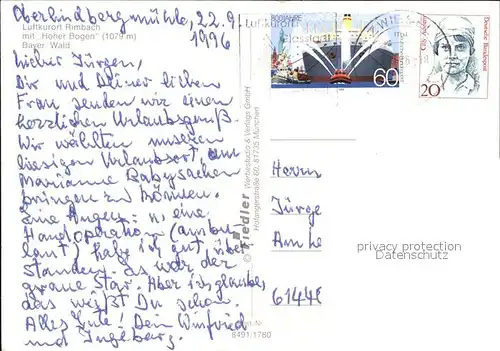 Oberlindbergmühle, 22.9.
1996
Luftkurort Rimbach
mit "Hoher Bogen" (1079 m)
Bayer. Wald
Lieber Jürgen,
Dir und Deiner lieben
Frau senden wir einen
herzlichen Urlaubsgruß.
Wir wählten unseren
hiesigen Urlaubsort, um
Marianne Babysachen
bringen zu können.
Eine Augen: n, eine
Handoperation (ambu
lant) habe ich gut über
standen. Es war der
graue Star. Aber ich glaube
das weißt Du schon.
Alles Gute! Dein Winfried
und Ingeborg.
© Fiedler Werbestudio & Verlags GmbH
81735 München
8491/1760
Luftkurort
Glasstadt
ZWIESEL
60
20
Cilly Aussem
Deutsche Bundespost
Herrn
Jürge
Am He
61440
privacy protection
Datenschutz